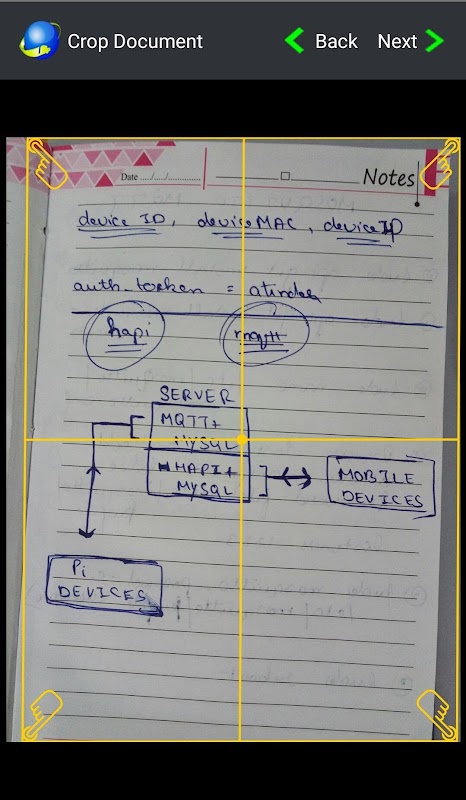 Crop Document
Back
Next
Date ..../..../............
Notes
device ID, device MAC, device IP
auth-token =
hapi
mqtt
SERVER
MQTT +
MYSQL
HAPI +
MYSQL
MOBILE
DEVICES
Pi
DEVICES